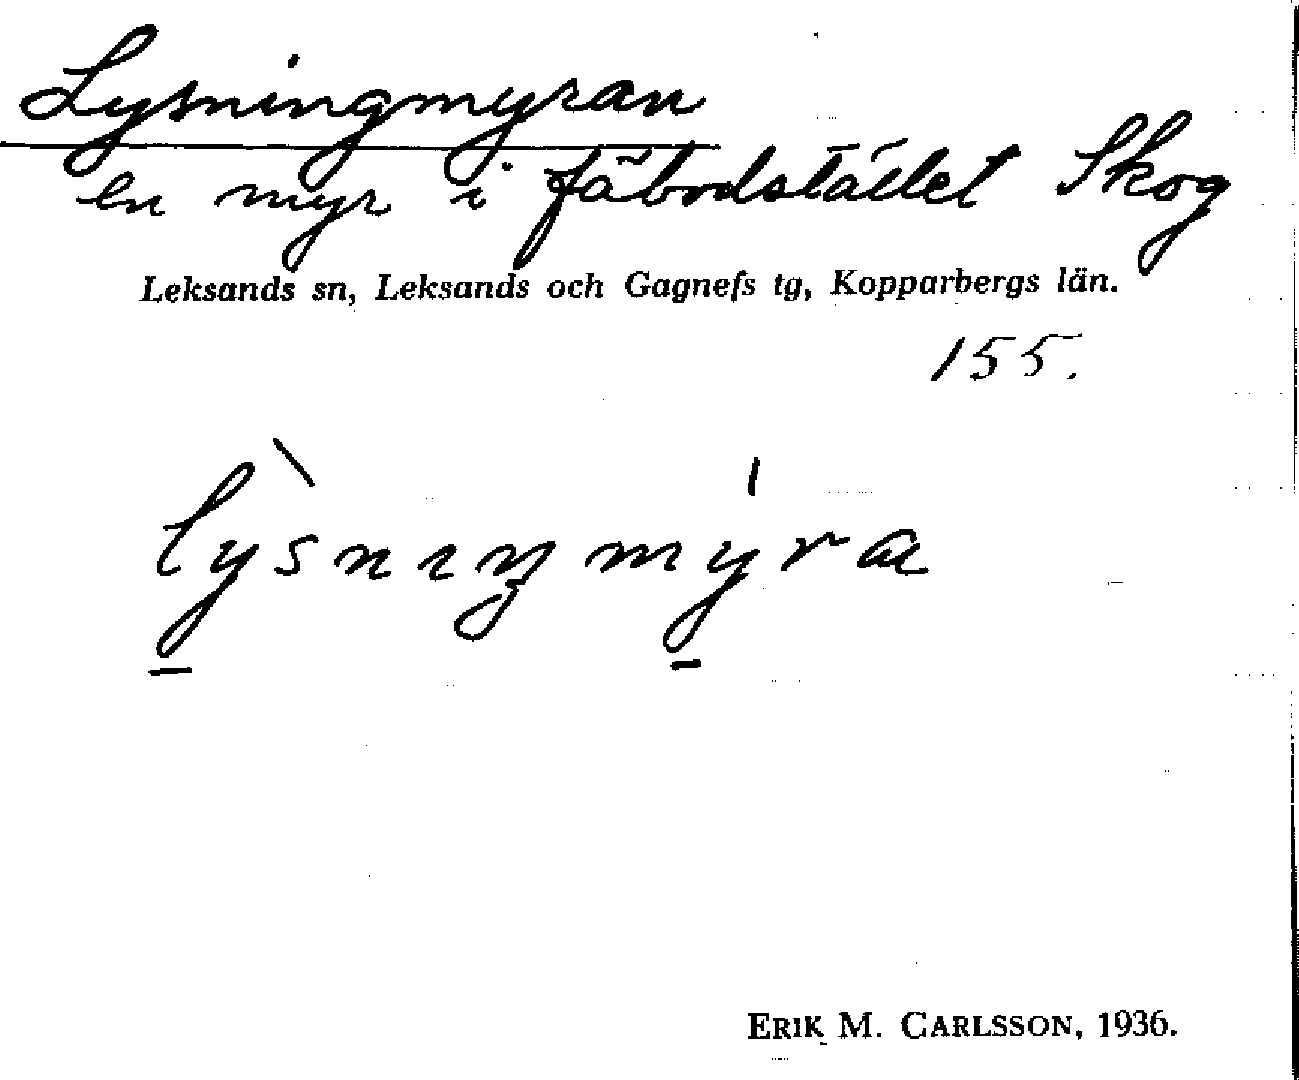 Lysningmyran
en myr i fäbodstället Skog
Leksands sn, Leksands och Gagnefs tg, Kopparbergs län.
155.
lỳsnıŋmy̍ra
ERIK M. CARLSSON, 1936.